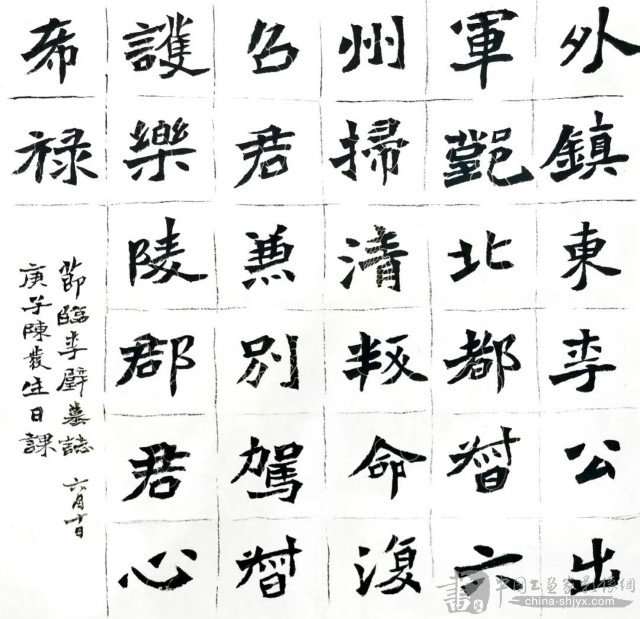 外鎮東李公出
軍北都督六
州掃清叛命復
召君兼別駕督
護樂陵郡君心
希禄
節臨李璧墓誌 六月十日
庚子陳生日課
書 中国书画家影像網
china-shjyx.com